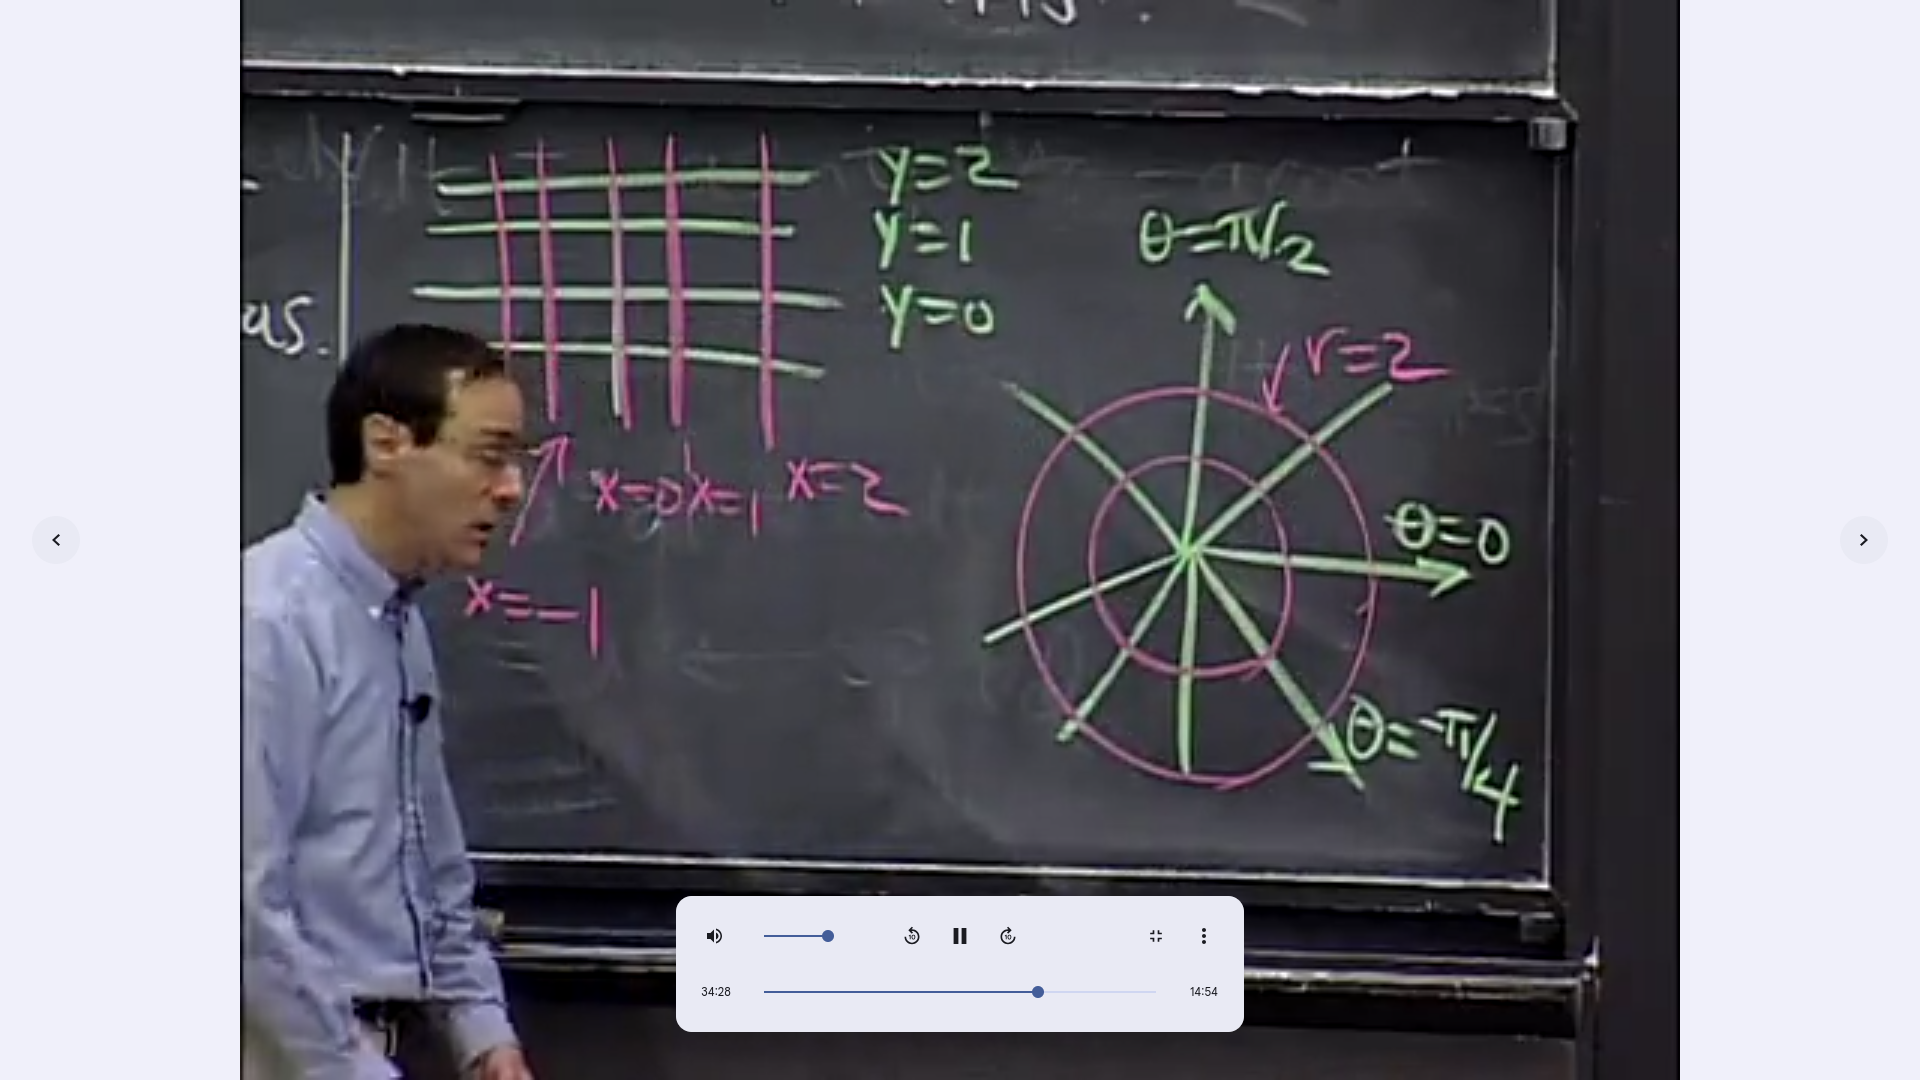 as.
y=2
y=1
y=0
x=0 x=1 x=2
x=-1
θ=π/2
r=2
θ=0
θ=-π/4
34:28
14:54